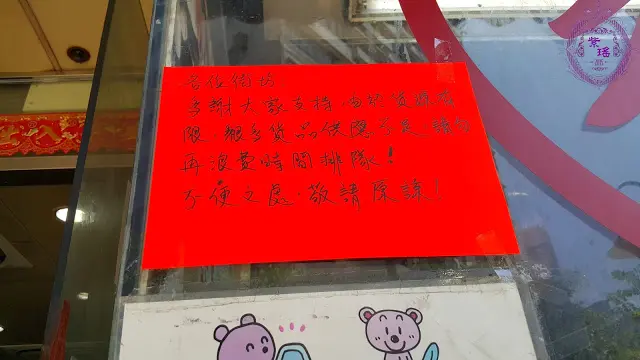 各位街坊，
多謝大家支持，由於資源有
限，很多貨品供應不足，請勿
再浪費時間排隊！
不便之處，敬請原諒！
紫瑤